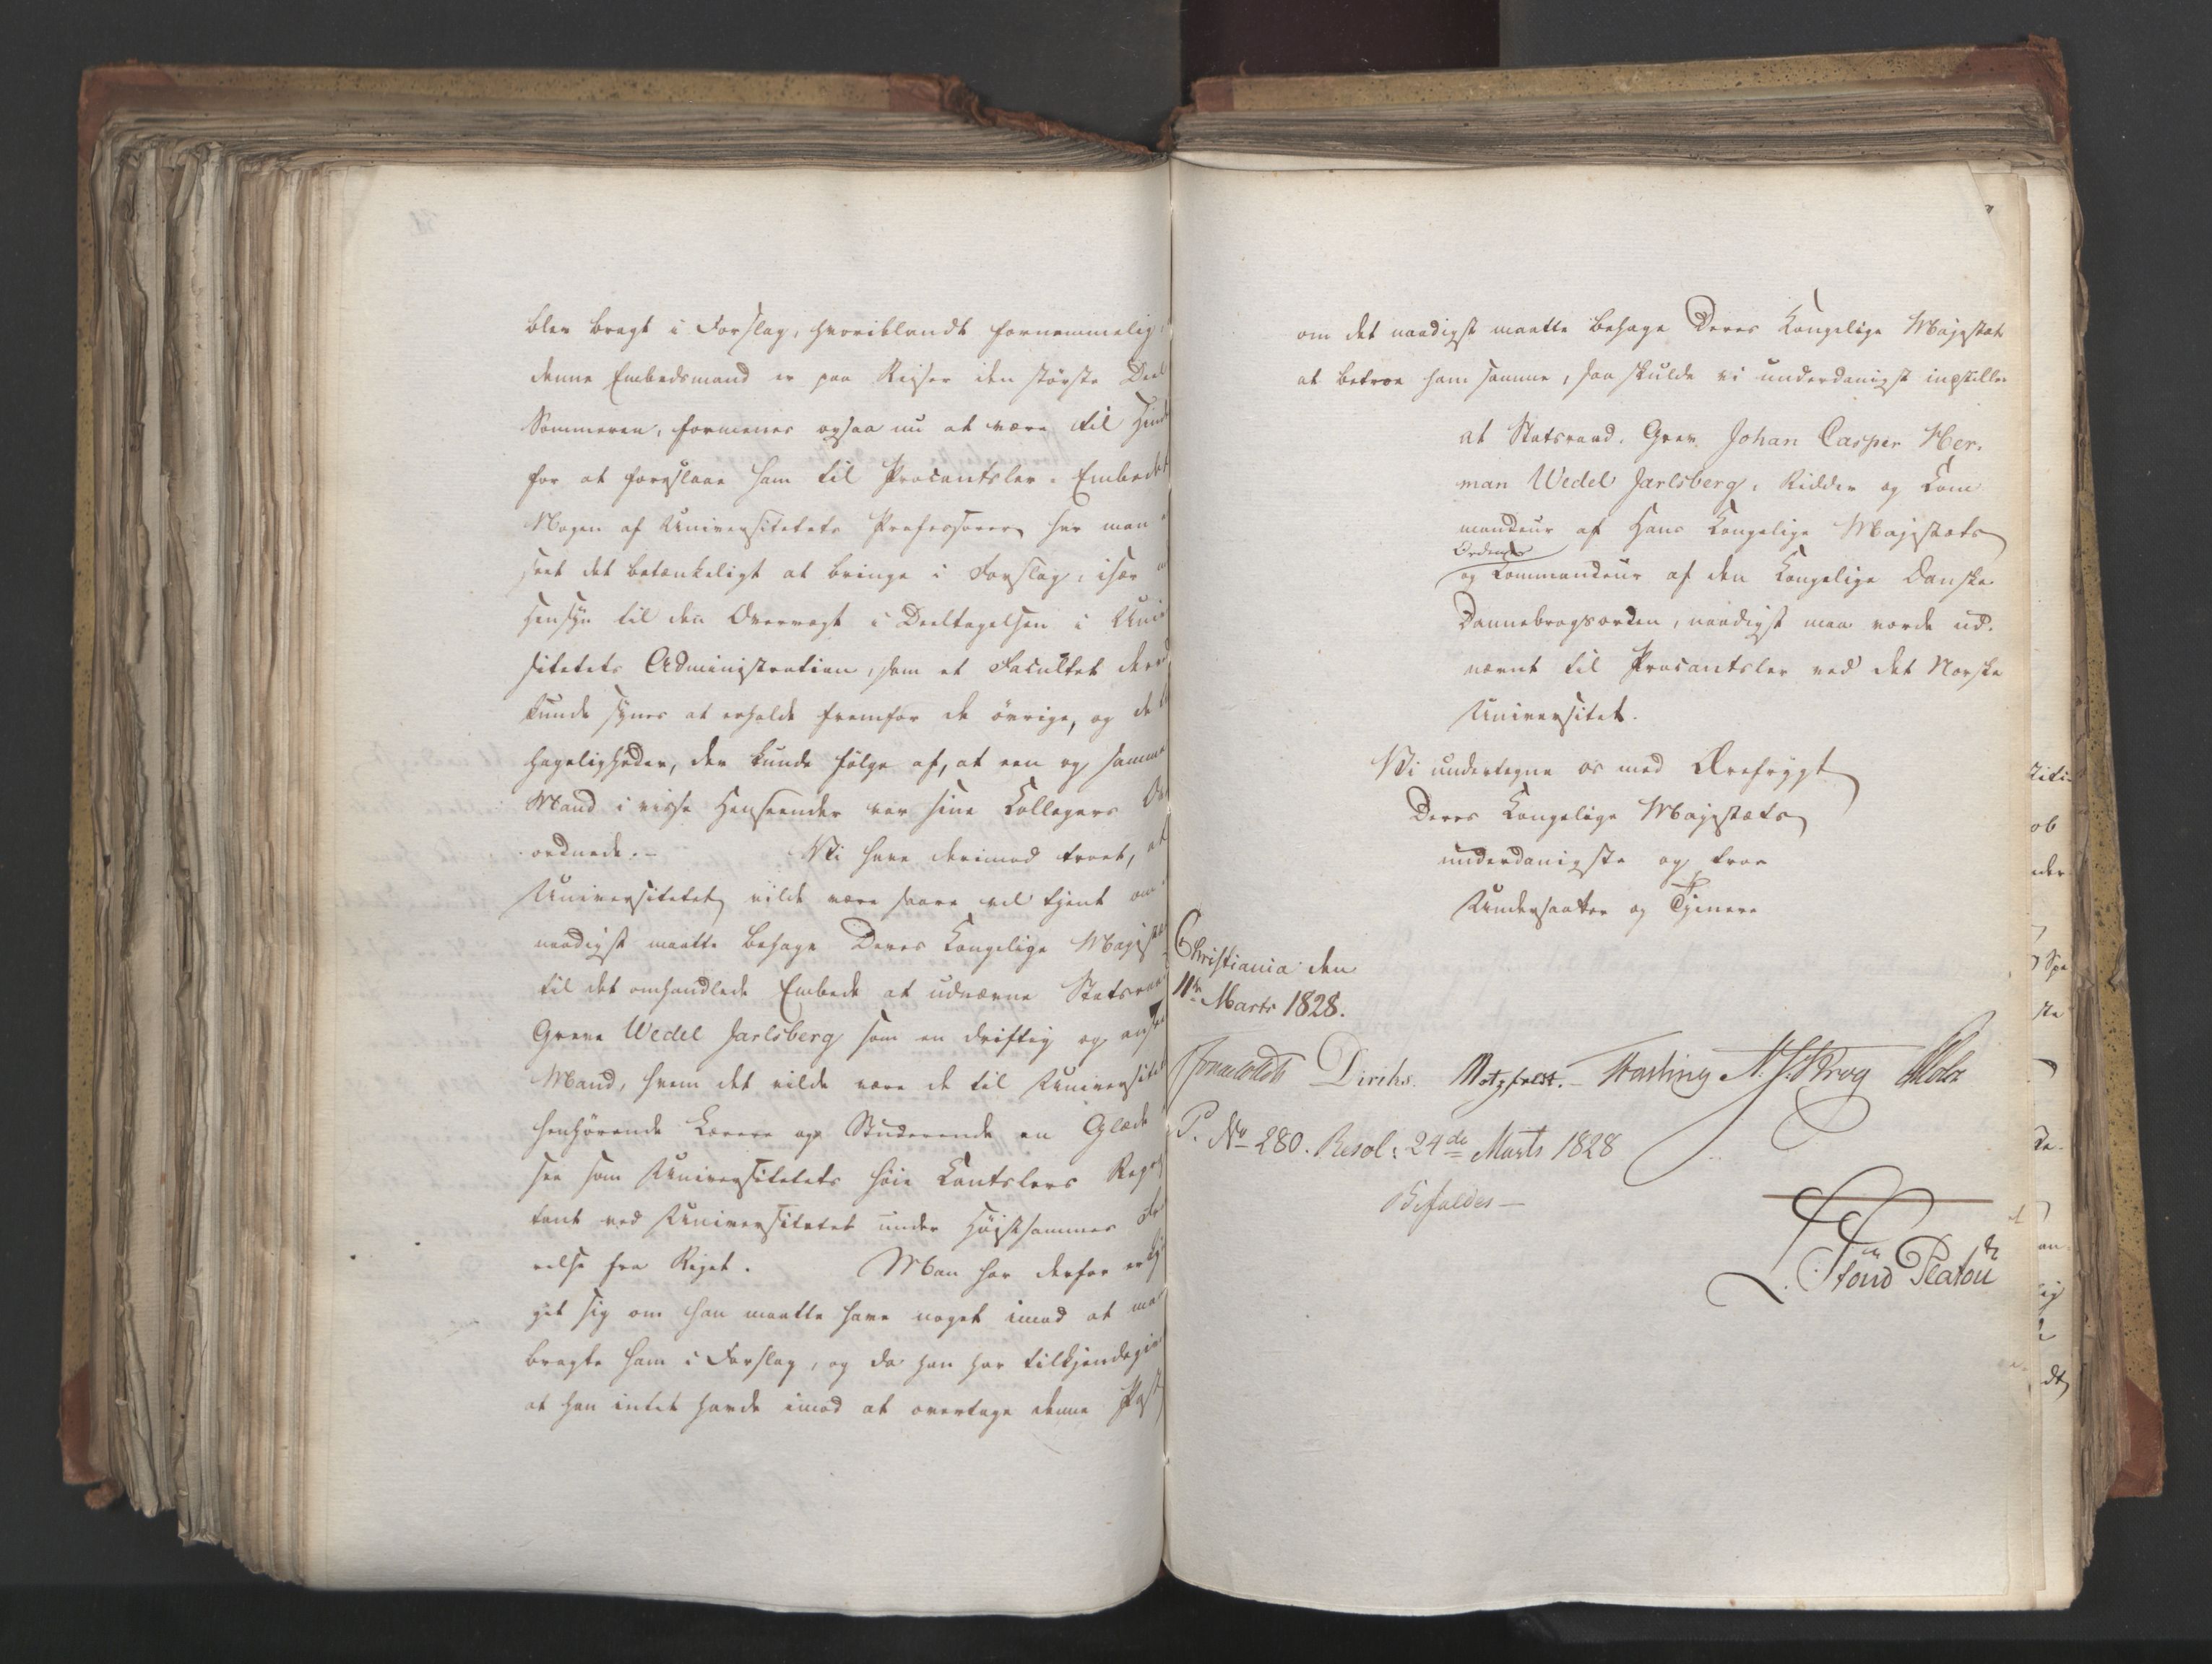 blev bragt i Forslag, hvoriblandt fornemmelig,
denne Embedsmand er paa Reiser den störste Deel
Sommeren, formenes ogsaa nu at være til Hind
for at foreslaae ham til Procantsler-Embedet
Nogen af Universitetets Professorer har man
seet det betænkeligt at bringe i Forslag, især
Hensyn til den Overvægt i Deeltagelsen i Univ
sitetets Administration, som et Facultet derved
kunde synes at erholde fremfor de övrige, og de
hageligheder, der kunde fölge af, at een og samme
Mand i visse Henseender var sine Kollegers Ov
ordnede.- Vi have derimod troet, at
Universitetet vilde være saare vel tjent om
naadigst maatte behage Deres Kongelige Majestæt
til det omhandlede Embede at udnævne Statsraad
Greve Wedel Jarlsberg som en driftig og anseet
Mand, hvem det vilde være de til Universitet
henhörende Lærere og Studerende en Glæde
see som Universitetets höie Cantslers Repr
tant ved Universitetet under Höistsammes Fra
velse fra Riget. Man har derfor erkyn
get sig om han maatte have noget imod at man
bragte ham i Forslag, og da han har tilkjendegiv
at han intet havde imod at overtage denne Post
om det naadigst maatte behage Deres Kongelige Majestæt
at betroe ham samme, saa skulde vi underdanigst indstille
at Statsraad, Grev Johan Casper Her-
man Wedel Jarlsberg, Ridder og Com
mandeur af Hans Kongelige Majestæts
Ordener
og Commandeur af den Kongelige Danske
Dannebrogsorden, naadigst maa vorde ud-
nævnt til Procantsler ved det Norske
Universitet.
Vi undertegne os med Ærefrygt
Deres Kongelige Majestæts
underdanigste og troe
Undersaatter og Tjenere
Christiania den
11te Marts 1828.
Diriks. Motzfeldt.- Fasting N. J. Krog Holst
P. No 280. Resol: 24de Marts 1828
Bifaldes-
Stoud Platou